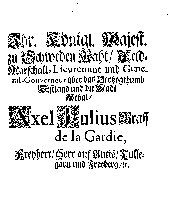 Ihr. Königl. Majest.
zu Schweden Raht / Feld-
Marschall-Lieutenant und Gene-
ral-Gouverneur über das Hertzogthumb
Ehstland und die Stadt
Reval /
Axel Julius Graff
de la Gardie,
Freyherr / Herr auf
und